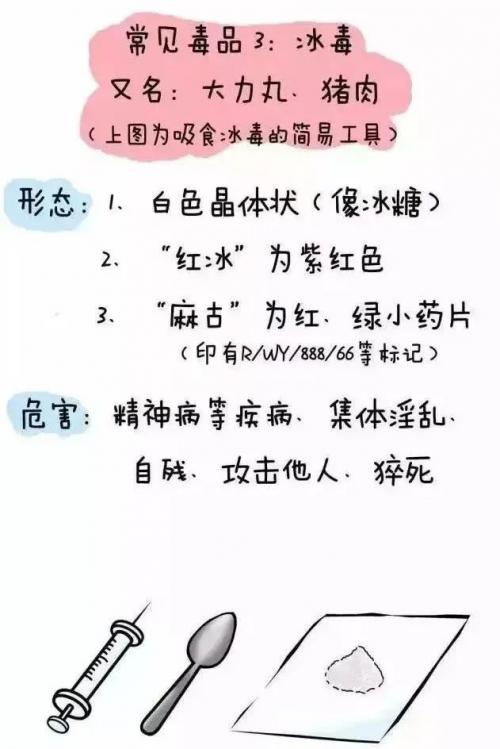 常见毒品3：冰毒
又名：大力丸、猪肉
（上图为吸食冰毒的简易工具）
形态：1、白色晶体状（像冰糖）
2、“红冰”为紫红色
3、“麻古”为红、绿小药片
（印有R/WY/888/66等标记）
危害：精神病等疾病、集体淫乱、
自残、攻击他人、猝死